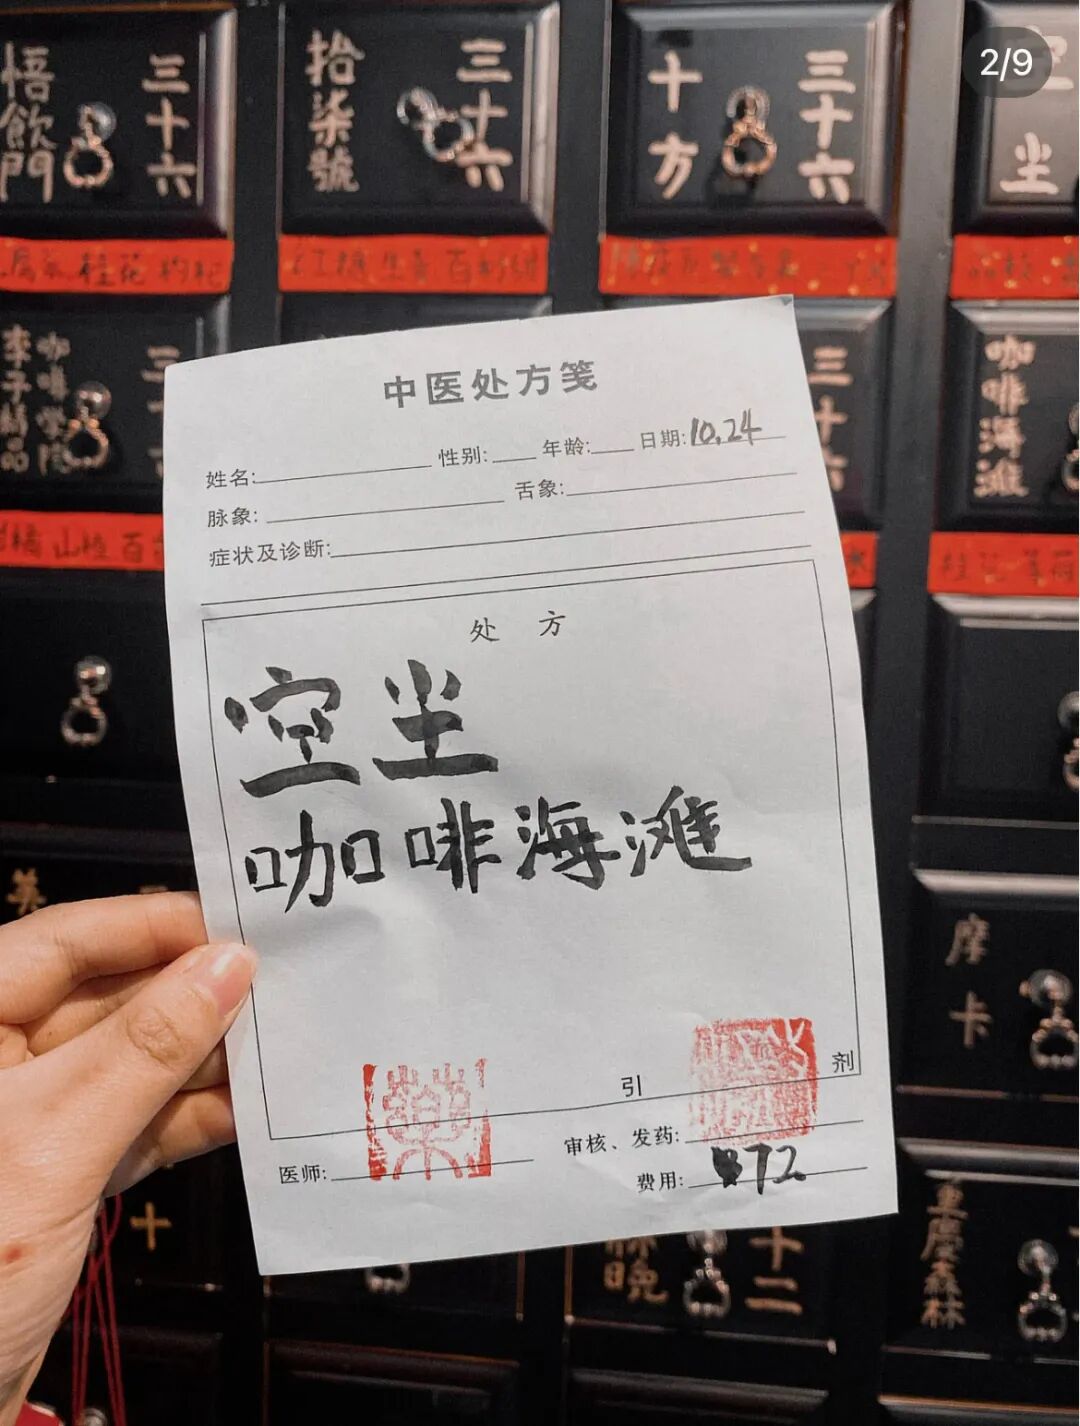 2/9
悟飲門
三十六
拾柒號
三十六
十方
三十六
空尘
桂花 枸杞
李子精品
咖啡
三十六
咖啡海滩
山楂
中医处方笺
姓名: 性别: 年龄: 日期:10.24
脉象: 舌象:
症状及诊断:
处 方
空尘
咖啡海滩
引 剂
医师: 审核、发药:
费用: 72
摩卡
十
十二
重慶森林